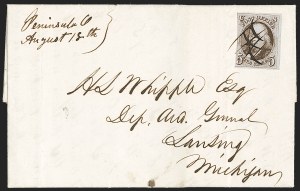 Peninsula O
August 18th
H L Whipple Esq
Dep. Aud. General
Lansing
Michigan